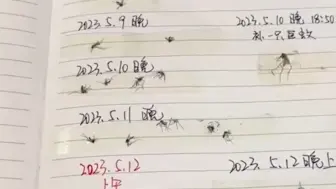 2023.5.9 晚
2023.5.10 晚 18:50
2023.5.10 晚
2023.5.11 晚
2023.5.12
上午
2023.5.12 晚上